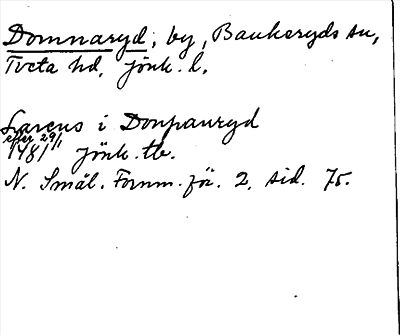 Domnaryd, by, Bankeryds sn,
Tveta hd, Jönk. l.
Larens i Donpanryd
efter 29/1
1481 Jönk. tb.
N. Smål. Fornm. för. 2, sid. 75.